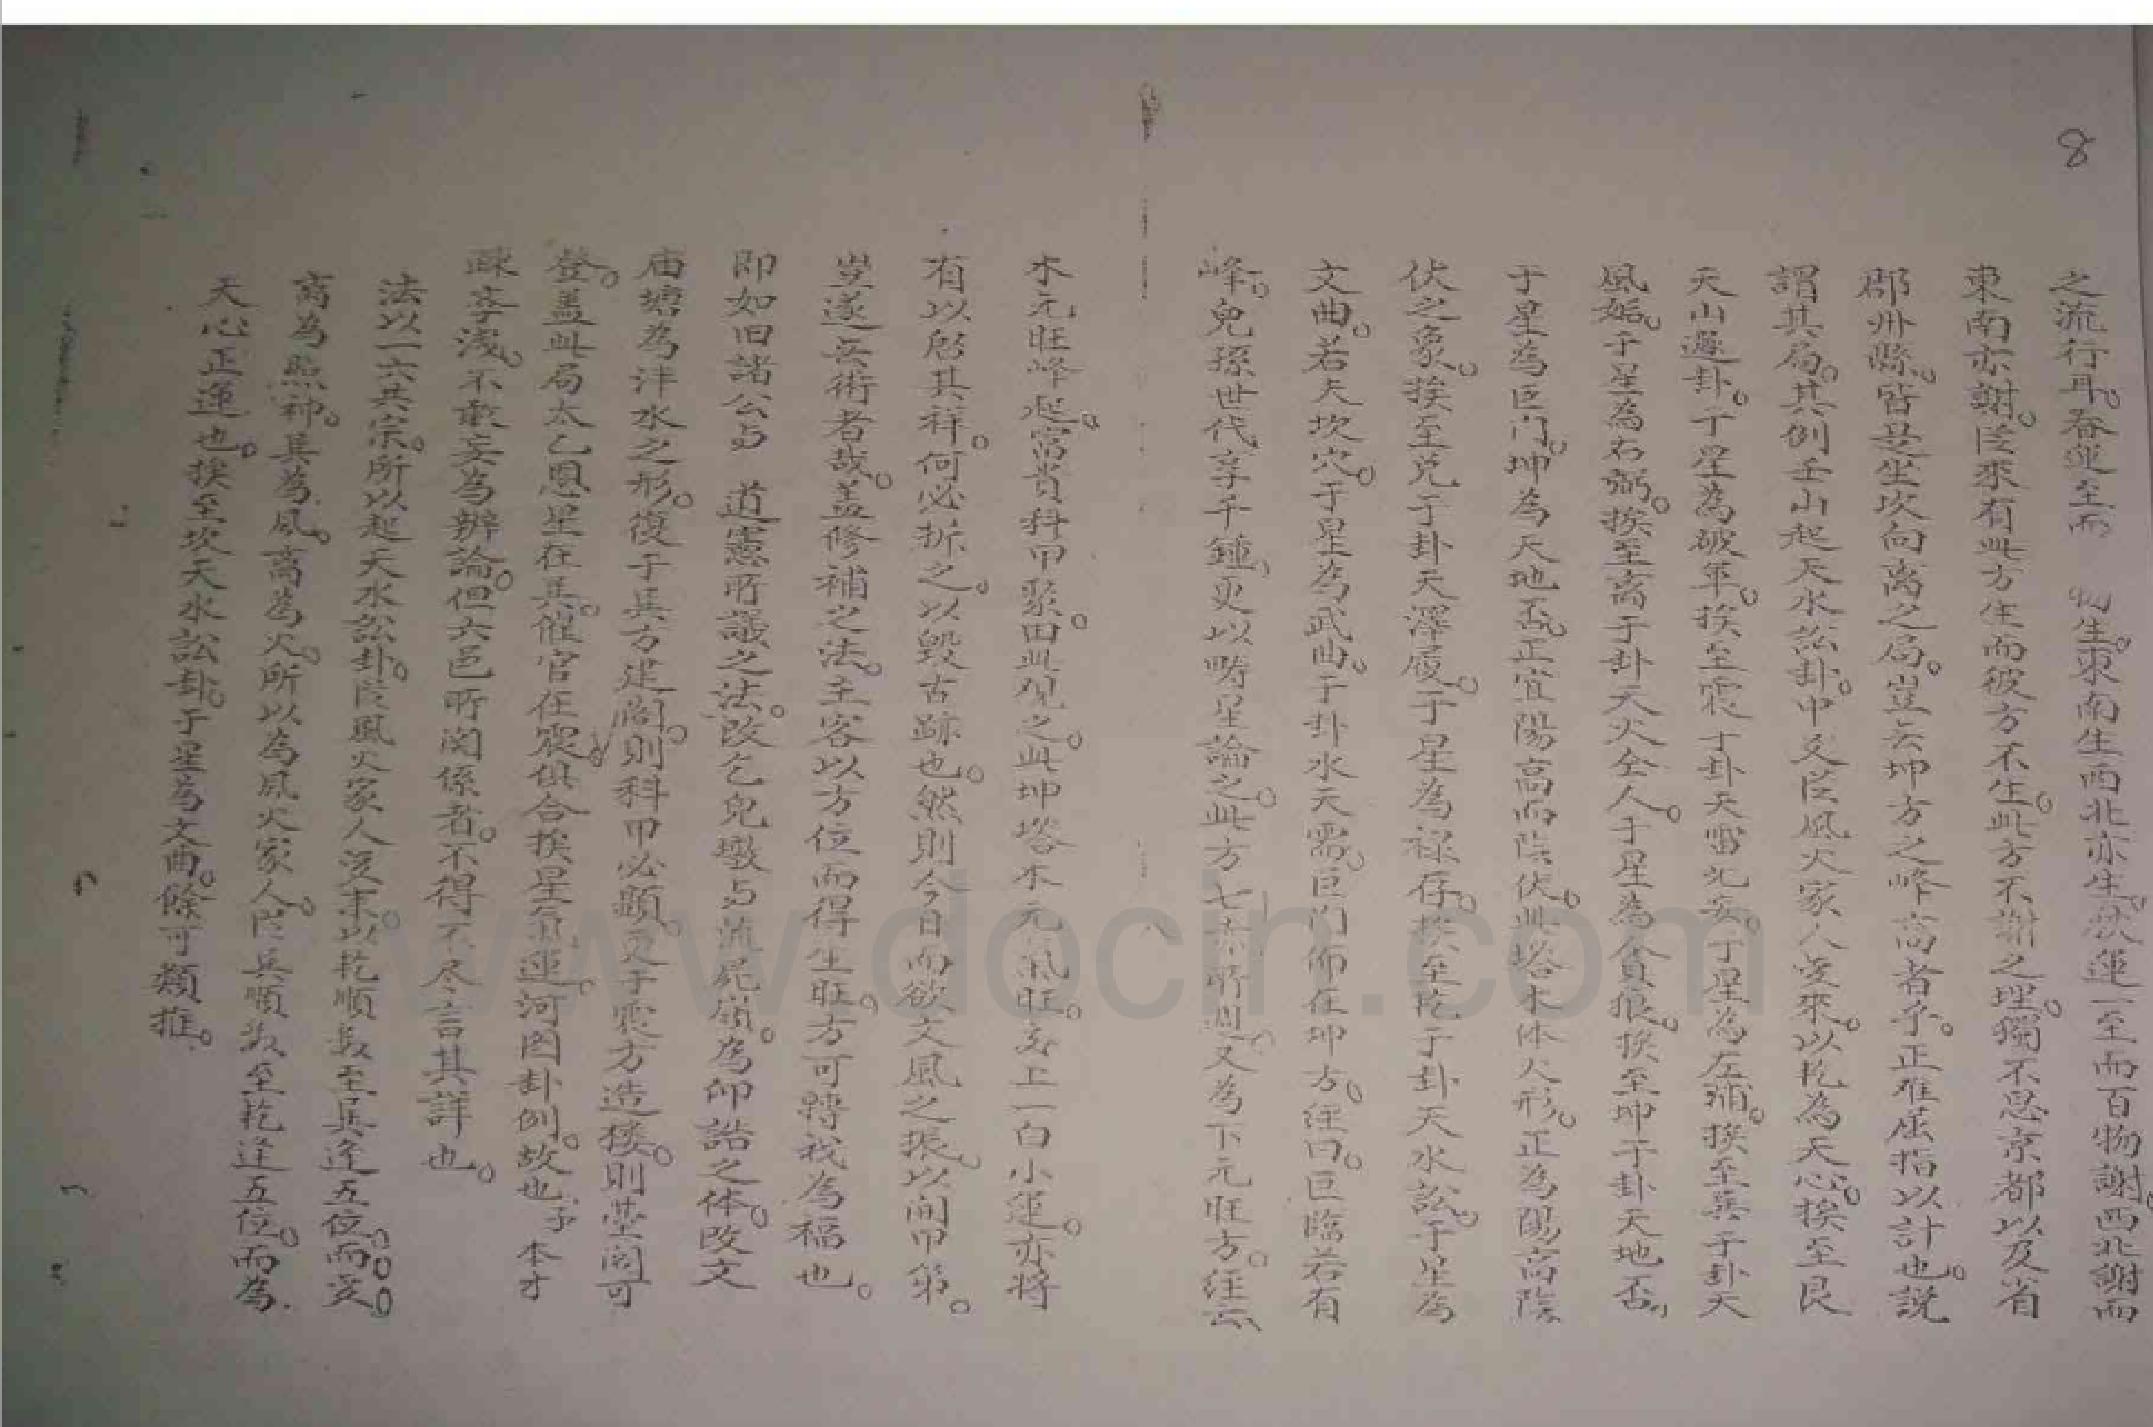 8
之流行耳。春運至而　物生。東南生西北亦生。秋運一至而百物謝。西北謝而
東南亦謝。從來有此方生而彼方不生。此方不謝之理。獨不思京都以及省
郡州縣。皆是坐坎向离之局。豈無坤方之峰高者乎。正难屈指以計也。説
謂其局。其例壬山起天水訟卦。中爻從風火家人变來。以乾為天心。挨至艮
天山遯卦。于星為破軍。挨至震于卦天雷无妄。于星為左浦。挨至巽于卦天
風姤。于星為右弼。挨至离于卦天火仝人。于星為貪狼。挨至坤于卦天地否。
于星為巨门。坤為天地否。正宜陽高而陰伏。此塔木体火形。正為陽高陰
伏之象。挨至兑于卦天澤履。于星為禄存。挨至乾于卦天水訟。于星為
文曲。若夫坎穴。于星為武曲。于卦水天需。巨门郁在坤方。经曰。巨臨若有
峰。兒孫世代享千鍾。更以畴星論之。此方七赤所 又為下元旺方。经云
木元旺峰起。富貴科甲聚。由此观之。此坤塔木元氣旺。交上一白小運。亦将
有以啓其祥。何必拆之。以毀古跡也。然則今日而欲文風之振。以開甲第。
豈遂無術者哉。盖修補之法。主客以方位而得生旺。方可轉我為福也。
即如旧諸公与　道憲所議之法。改乞兒墩与流屍廟。為仰誥之体。改文
庙塘為泮水之形。復于巽方建阁。則科甲必顕。又于震方造楼。則莖阁可
登。盖此局太乙恩星在巽。催官在震。俱合挨星氣運。河图卦例。故也。予　本才
疎李浅。不敢妄為辨論。但六邑所関係者。不得不尽言其詳也。
法以一六共宗。所以起天水訟卦。從風火家人变来。以乾順数至巽。逢五位。而变。
离為照神。巽為風。离為火。所以為風火家人。從巽順数至乾逢五位。而為
天心正運也。挨至坎天水訟卦。于星為文曲。餘可類推。
www.docin.com